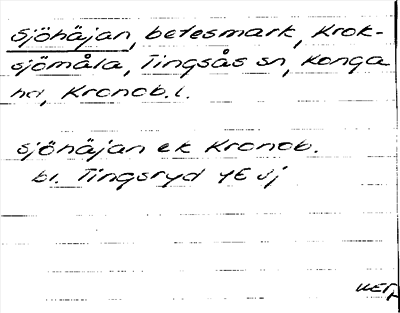 Sjöhäjan, betesmark, Krok-
sjömåla, Tingsås sn, Konga
hd, Kronob. l.
Sjöhäjan ek Kronob.
bl. Tingsryd 4E